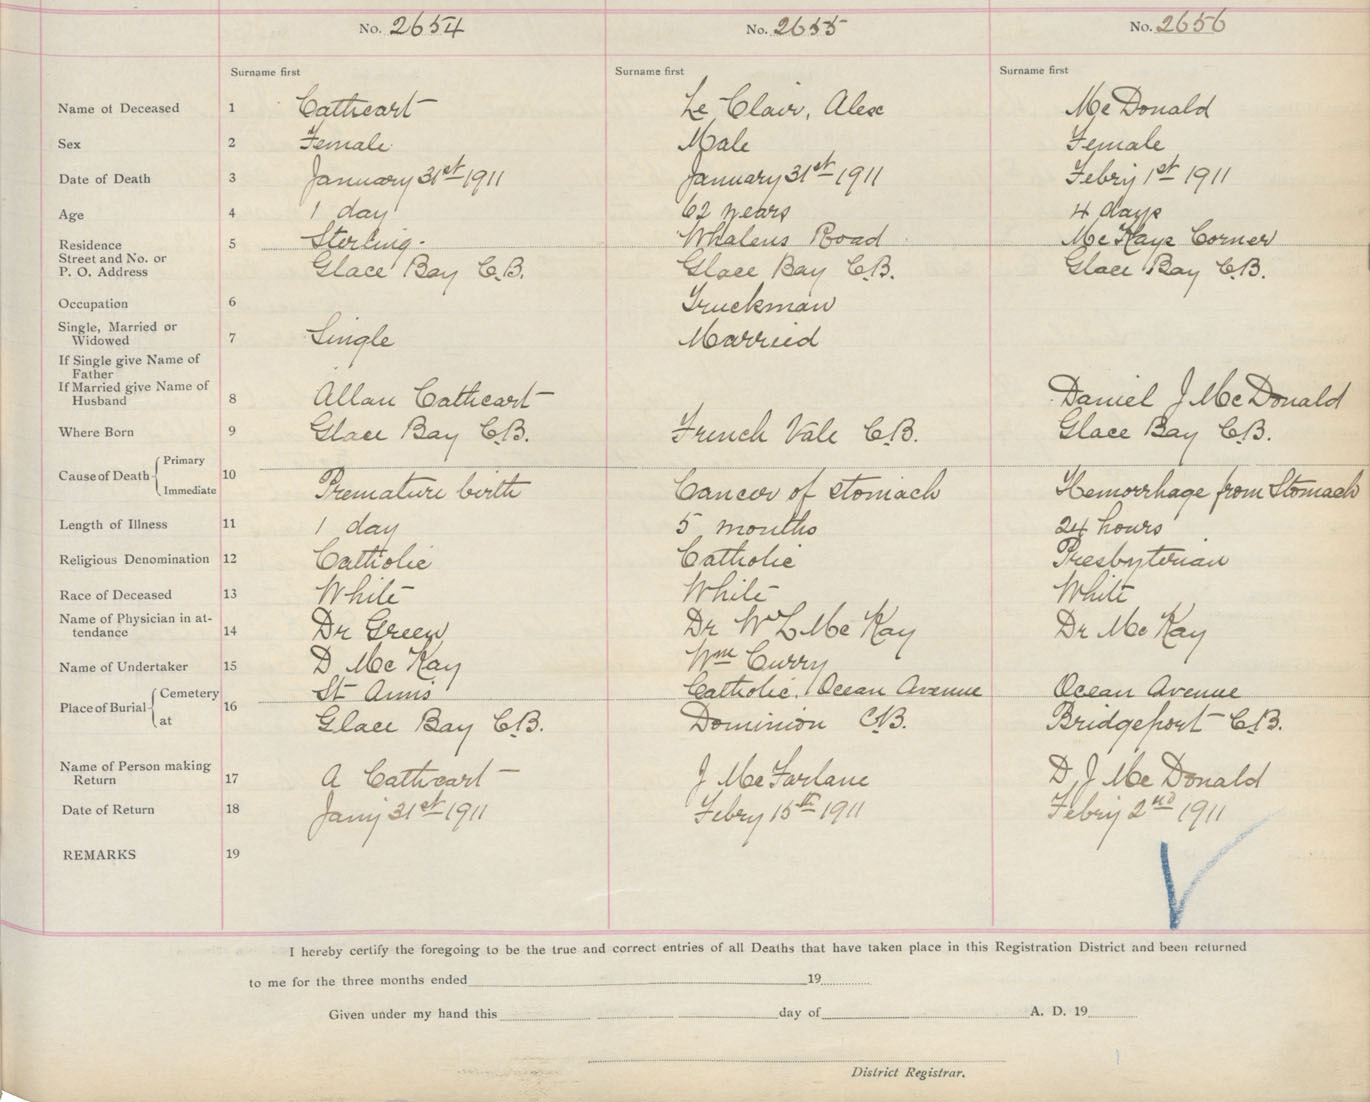 No. 2654 No. 2655 No. 2656
Surname first Surname first Surname first
Name of Deceased 1 Cathcart Le Clair, Alex McDonald
Sex 2 Female Male Female
Date of Death 3 January 31st 1911 January 31st 1911 Febry 1st 1911
Age 4 1 day 62 years 4 days
Residence 5 Sterling. Whalens Road McKays Corner
Street and No. or
P. O. Address Glace Bay C.B. Glace Bay C.B. Glace Bay C.B.
Occupation 6 Truckman
Single, Married or
Widowed 7 Single Married
If Single give Name of
Father
If Married give Name of
Husband 8 Allan Cathcart Daniel J McDonald
Where Born 9 Glace Bay C.B. French Vale C.B. Glace Bay C.B.
Cause of Death Primary 10
Immediate Premature birth Cancer of stomach Hemorrhage from Stomach
Length of Illness 11 1 day 5 months 24 hours
Religious Denomination 12 Catholic Catholic Presbyterian
Race of Deceased 13 White White White
Name of Physician in at-
tendance 14 Dr Green Dr Wm L McKay Dr McKay
Name of Undertaker 15 D McKay Wm Curry
Place of Burial Cemetery 16 St Anns Catholic, Ocean Avenue Ocean Avenue
at Glace Bay C.B. Dominion C.B. Bridgeport C.B.
Name of Person making
Return 17 A Cathcart J McFarlane D, J McDonald
Date of Return 18 Jany 31st 1911 Febry 15th 1911 Febry 2nd 1911
REMARKS 19
I hereby certify the foregoing to be the true and correct entries of all Deaths that have taken place in this Registration District and been returned
to me for the three months ended 19
Given under my hand this day of A. D. 19
District Registrar.